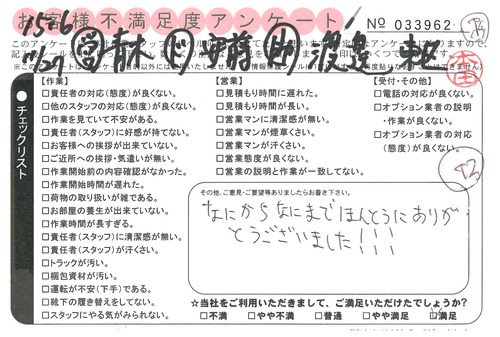 お客様不満足度アンケート
No 033962
1586
7/29 営 青木 伊藤 助 渡邉
チェックリスト
【作業】
□責任者の対応(態度)が良くない。
□他のスタッフの対応(態度)が良くない。
□作業を見ていて不安がある。
□責任者(スタッフ)に好感が持てない。
□お客様への挨拶が出来ていない。
□ご近所への挨拶・気遣いが無い。
□作業開始前の内容確認がなかった。
□作業開始時間が遅れた。
□荷物の取り扱いが雑である。
□お部屋の養生が出来ていない。
□作業時間が長すぎる。
□責任者(スタッフ)に清潔感が無い。
□責任者(スタッフ)が汗くさい。
□トラックが汚い。
□梱包資材が汚い。
□運転が不安(下手)である。
□靴下の履き替えをしてない。
□スタッフにやる気がみられない。
【営業】
□見積もり時間に遅れた。
□見積もり時間が長い。
□営業マンに清潔感が無い。
□営業マンが煙草くさい。
□営業マンが汗くさい。
□営業態度が良くない。
□営業の説明と作業が一致してない。
【受付・その他】
□電話の対応が良くない。
□オプション業者の説明
・作業が良くない。
□オプション業者の対応
(態度)が良くない。
82
その他、ご意見・ご要望等ありましたらお書き下さい。
なにからなにまでほんとうにありが
とうございました!!!
☆当社をご利用いただきまして、ご満足いただけたでしょうか?
□不満 □やや不満 □普通 □やや満足 □満足